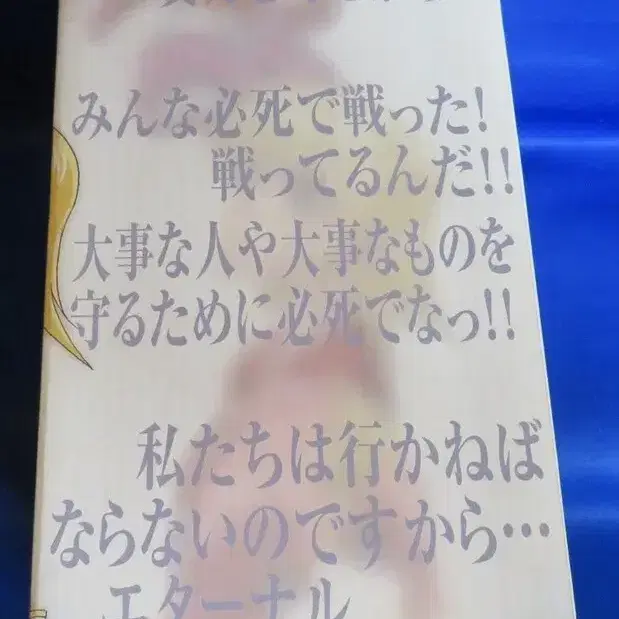 みんな必死で戦った!
戦ってるんだ!!
大事な人や大事なものを
守るために必死でなっ!!
私たちは行かねば
ならないのですから…
エターナル